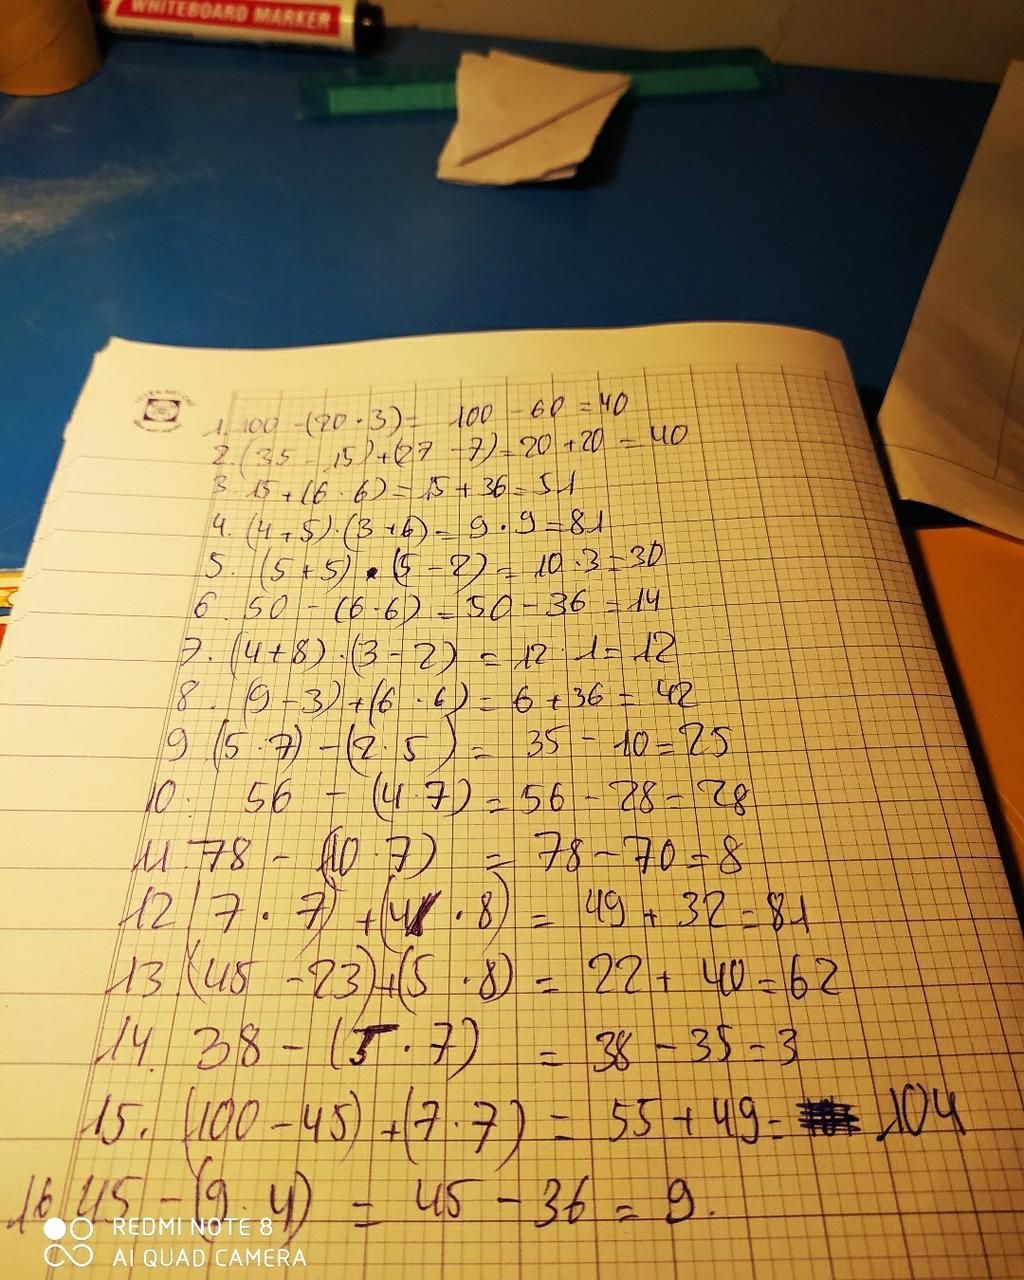 WHITEBOARD MARKER
1. 100 - (20 · 3) = 100 - 60 = 40
2. (35 - 15) + (27 - 7) = 20 + 20 = 40
3 15 + (6 · 6) = 15 + 36 = 51
4. (4 + 5) · (3 + 6) = 9 · 9 = 81
5. (5 + 5) · (5 - 2) = 10 · 3 = 30
6 50 - (6 · 6) = 50 - 36 = 14
7. (4 + 8) · (3 - 2) = 12 · 1 = 12
8. (9 - 3) + (6 · 6) = 6 + 36 = 42
9 (5 · 7) - (2 · 5) = 35 - 10 = 25
10. 56 - (4 · 7) = 56 - 28 = 28
11. 78 - (10 · 7) = 78 - 70 = 8
12 (7 · 7) + (4 · 8) = 49 + 32 = 81
13 (45 - 23) + (5 · 8) = 22 + 40 = 62
14. 38 - (5 · 7) = 38 - 35 = 3
15. (100 - 45) + (7 · 7) = 55 + 49 = 104
16 45 - (9 · 4) = 45 - 36 = 9.
REDMI NOTE 8
AI QUAD CAMERA